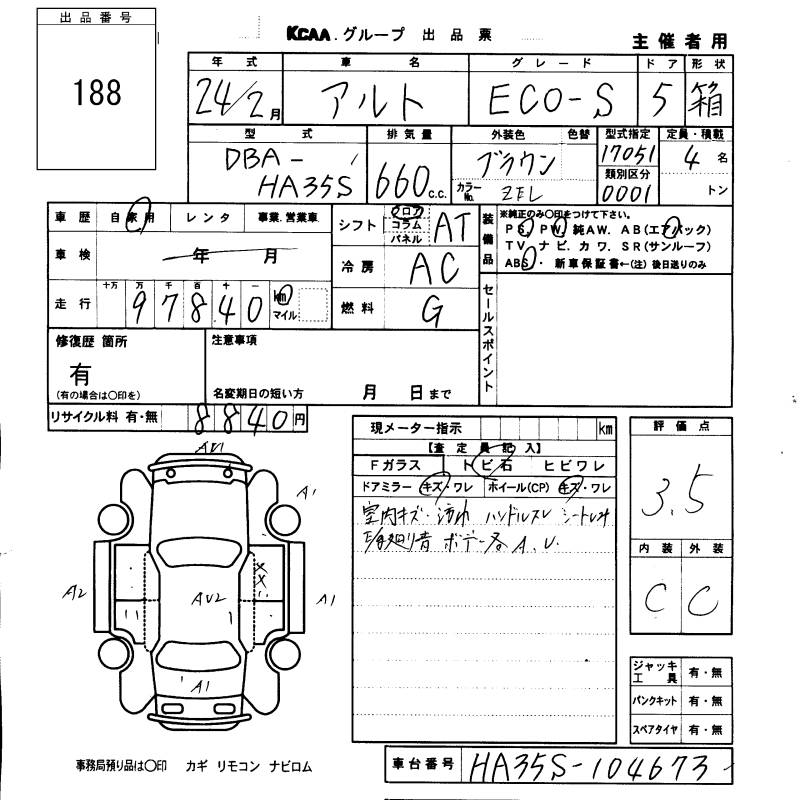 出品番号
188
KCAA.グループ 出品票
主催者用
年式 車名 グレード ドア 形状
24/2月 アルト ECO-S 5 箱
型式 排気量 外装色 色替 型式指定 定員・積載
DBA-HA35S 660c.c. ブラウン 17051 4名
カラーNo. ZEL 類別区分 0001 トン
車歴 自家用 レンタ 事業.営業車
シフト フロア コラム パネル AT
装備品
※純正のみ〇印をつけて下さい。
PS, PW, 純AW. AB(エアバック)
TV・ナビ.カワ.SR(サンルーフ)
ABS・新車保証書←(注)後日送りのみ
車検 年 月
冷房 AC
走行 十万 万 千 百 十 一
97840 km マイル
燃料 G
セールスポイント
修復歴 箇所
有
(有の場合は〇印を)
注意事項
名変期日の短い方 月 日まで
リサイクル料 有・無 8840円
現メーター指示 km
【査定員記入】
Fガラス トビ石 ヒビワレ
ドアミラー キズ・ワレ ホイール(CP) キズ・ワレ
室内キズ・汚れ ハンドルスレ シート
廻り音 ボデー各A.U.
評価点
3.5
内装 外装
C C
ジャッキ工具 有・無
パンクキット 有・無
スペアタイヤ 有・無
A1
A2
AU2
A1
A1
事務局預り品は〇印 カギ リモコン ナビロム
車台番号 HA35S-104673